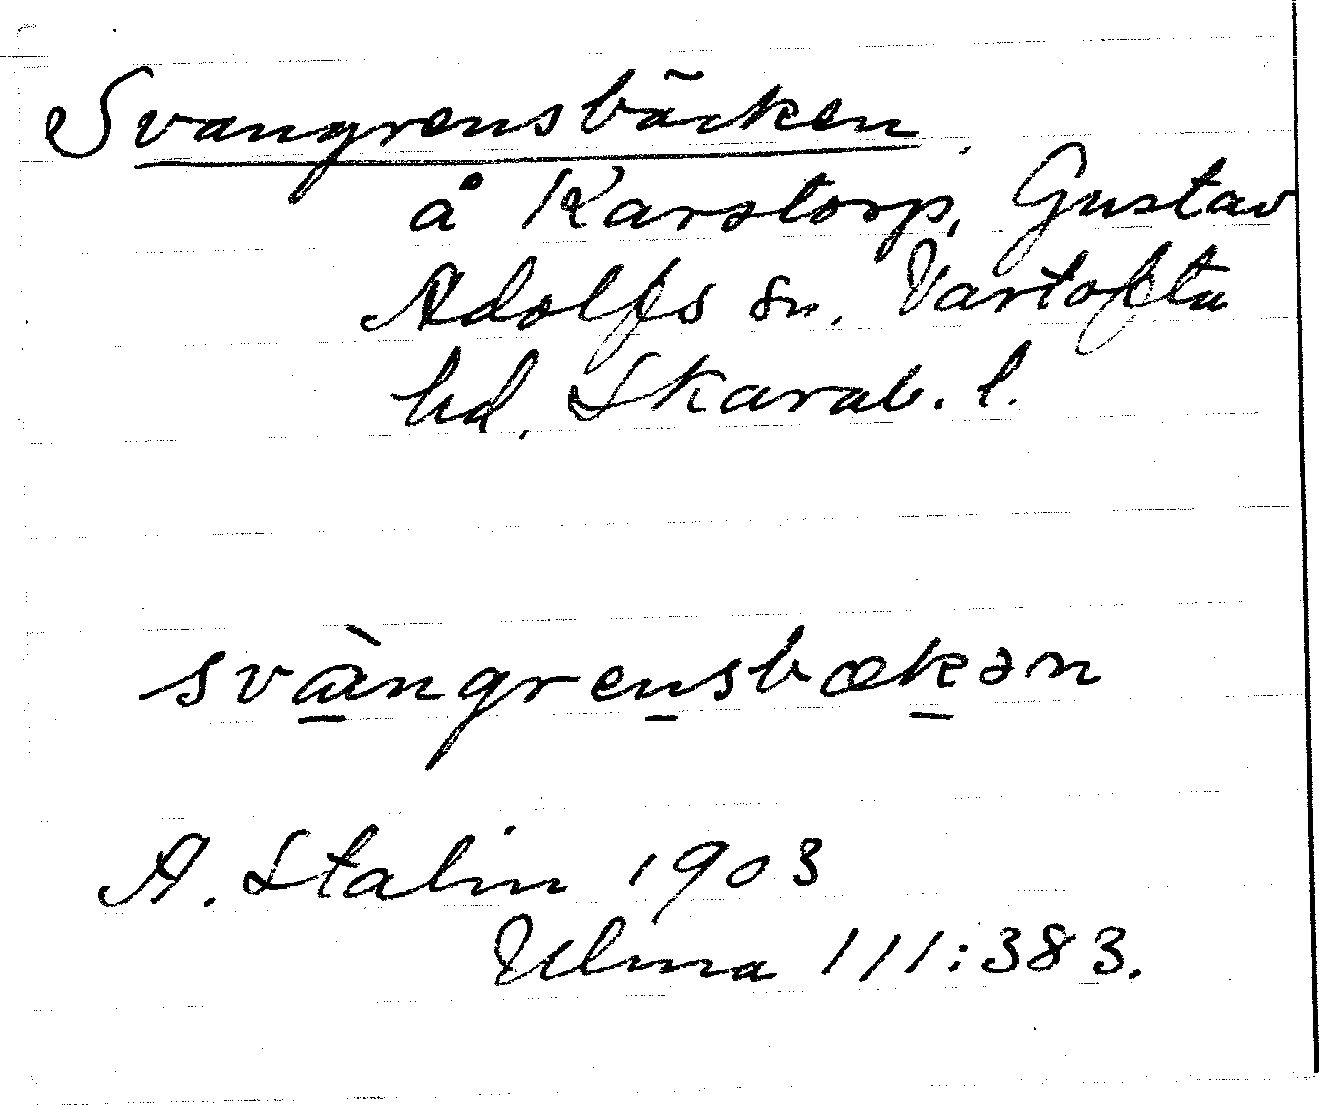 Svangrensbäcken,
å Karstorp, Gustav
Adolfs sn. Vartofta
hd. Skarab. l.
svàngrensbækən
A. Stalin 1903
Ulma 111:383.